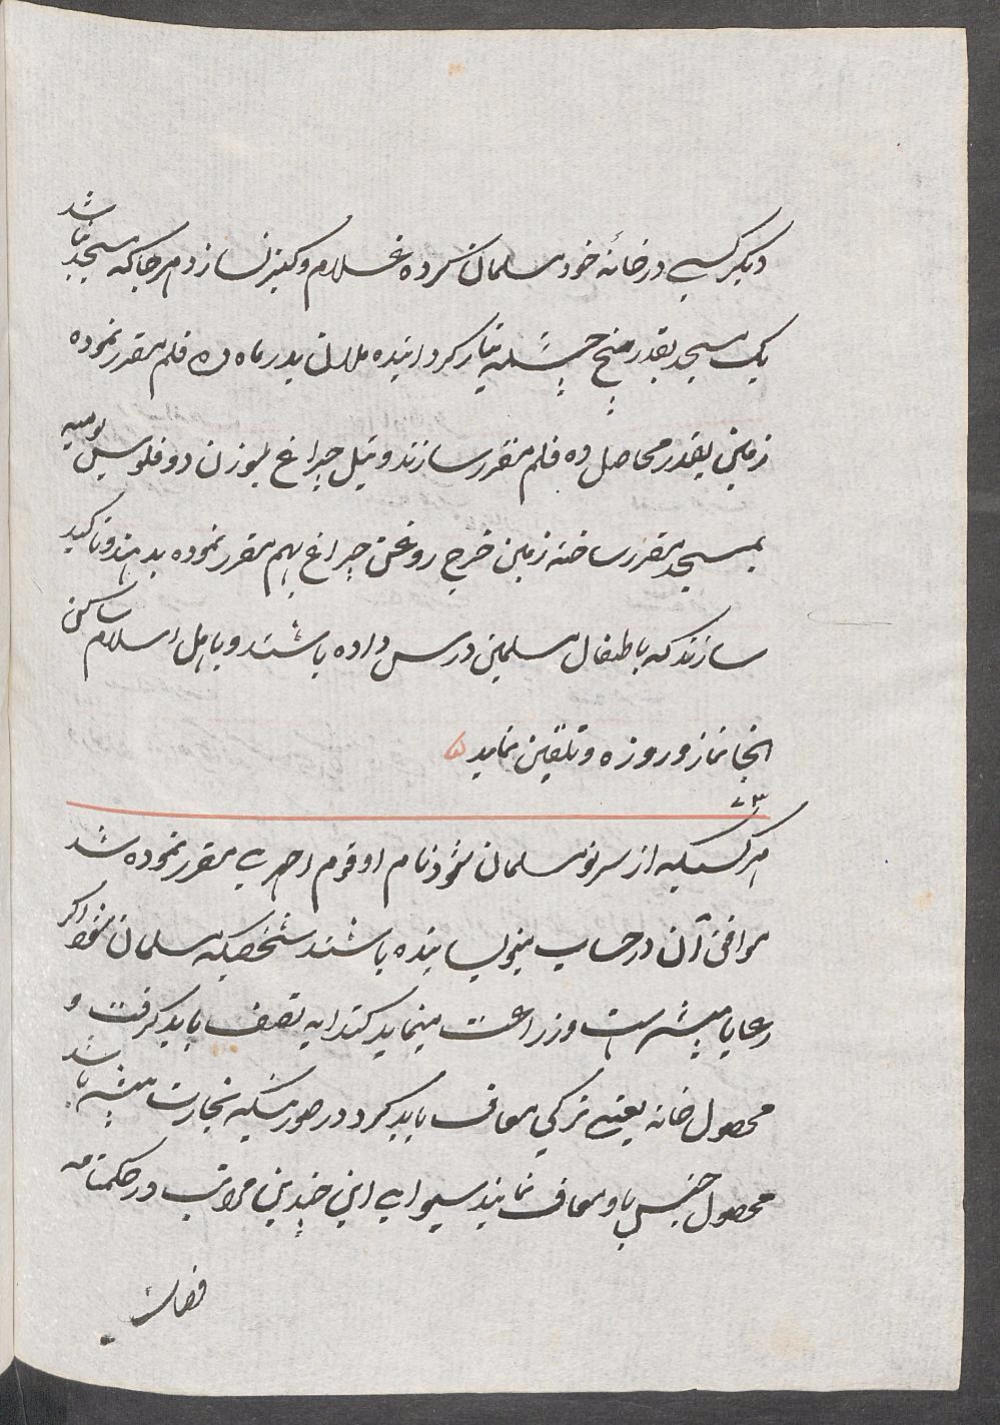 دیگر کسے در خانۀ خود مسلمان کرده غلام و کنیز نسازد هر جا که مسجد نباشد
یک مسجد بقدر پنج چشمه تیار گردانیده ملایان بدرماه ده فلم مقرر نموده
زمین بقدر محاصل ده فلم مقرر سازند و تیل چراغ بوزن دو فلوس یومیه
بمسجد مقرر ساخته زمین خرج روغن چراغ بهم مقرر نموده بدهند و تاکید
سازند که باطفال مسلمین درس داده باشند و باهل اسلام ساکن
انجا نماز و روزه و تلقین نماید
۷۳
هر کسیکه از سر نو مسلمان شود نام او قوم احمدے مقرر نموده شد
موافق آن در حساب مینویسانیده باشند شخصیکه مسلمان شود اگر
رعایا پیشه ست و زراعت مینماید کندایه نصف باید گرفت و
محصول خانه یعنے ترکی معاف باید کرد در صورتیکه تجارت پیشه باشد
محصول جنس باو معاف نمایند سیواے این چندین مراتب در حکمنامه
قضات